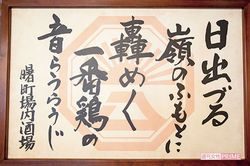 日出づる
嶺のふもとに
轟めく
一番鶏の
音うらうらじ
曙町場内酒場